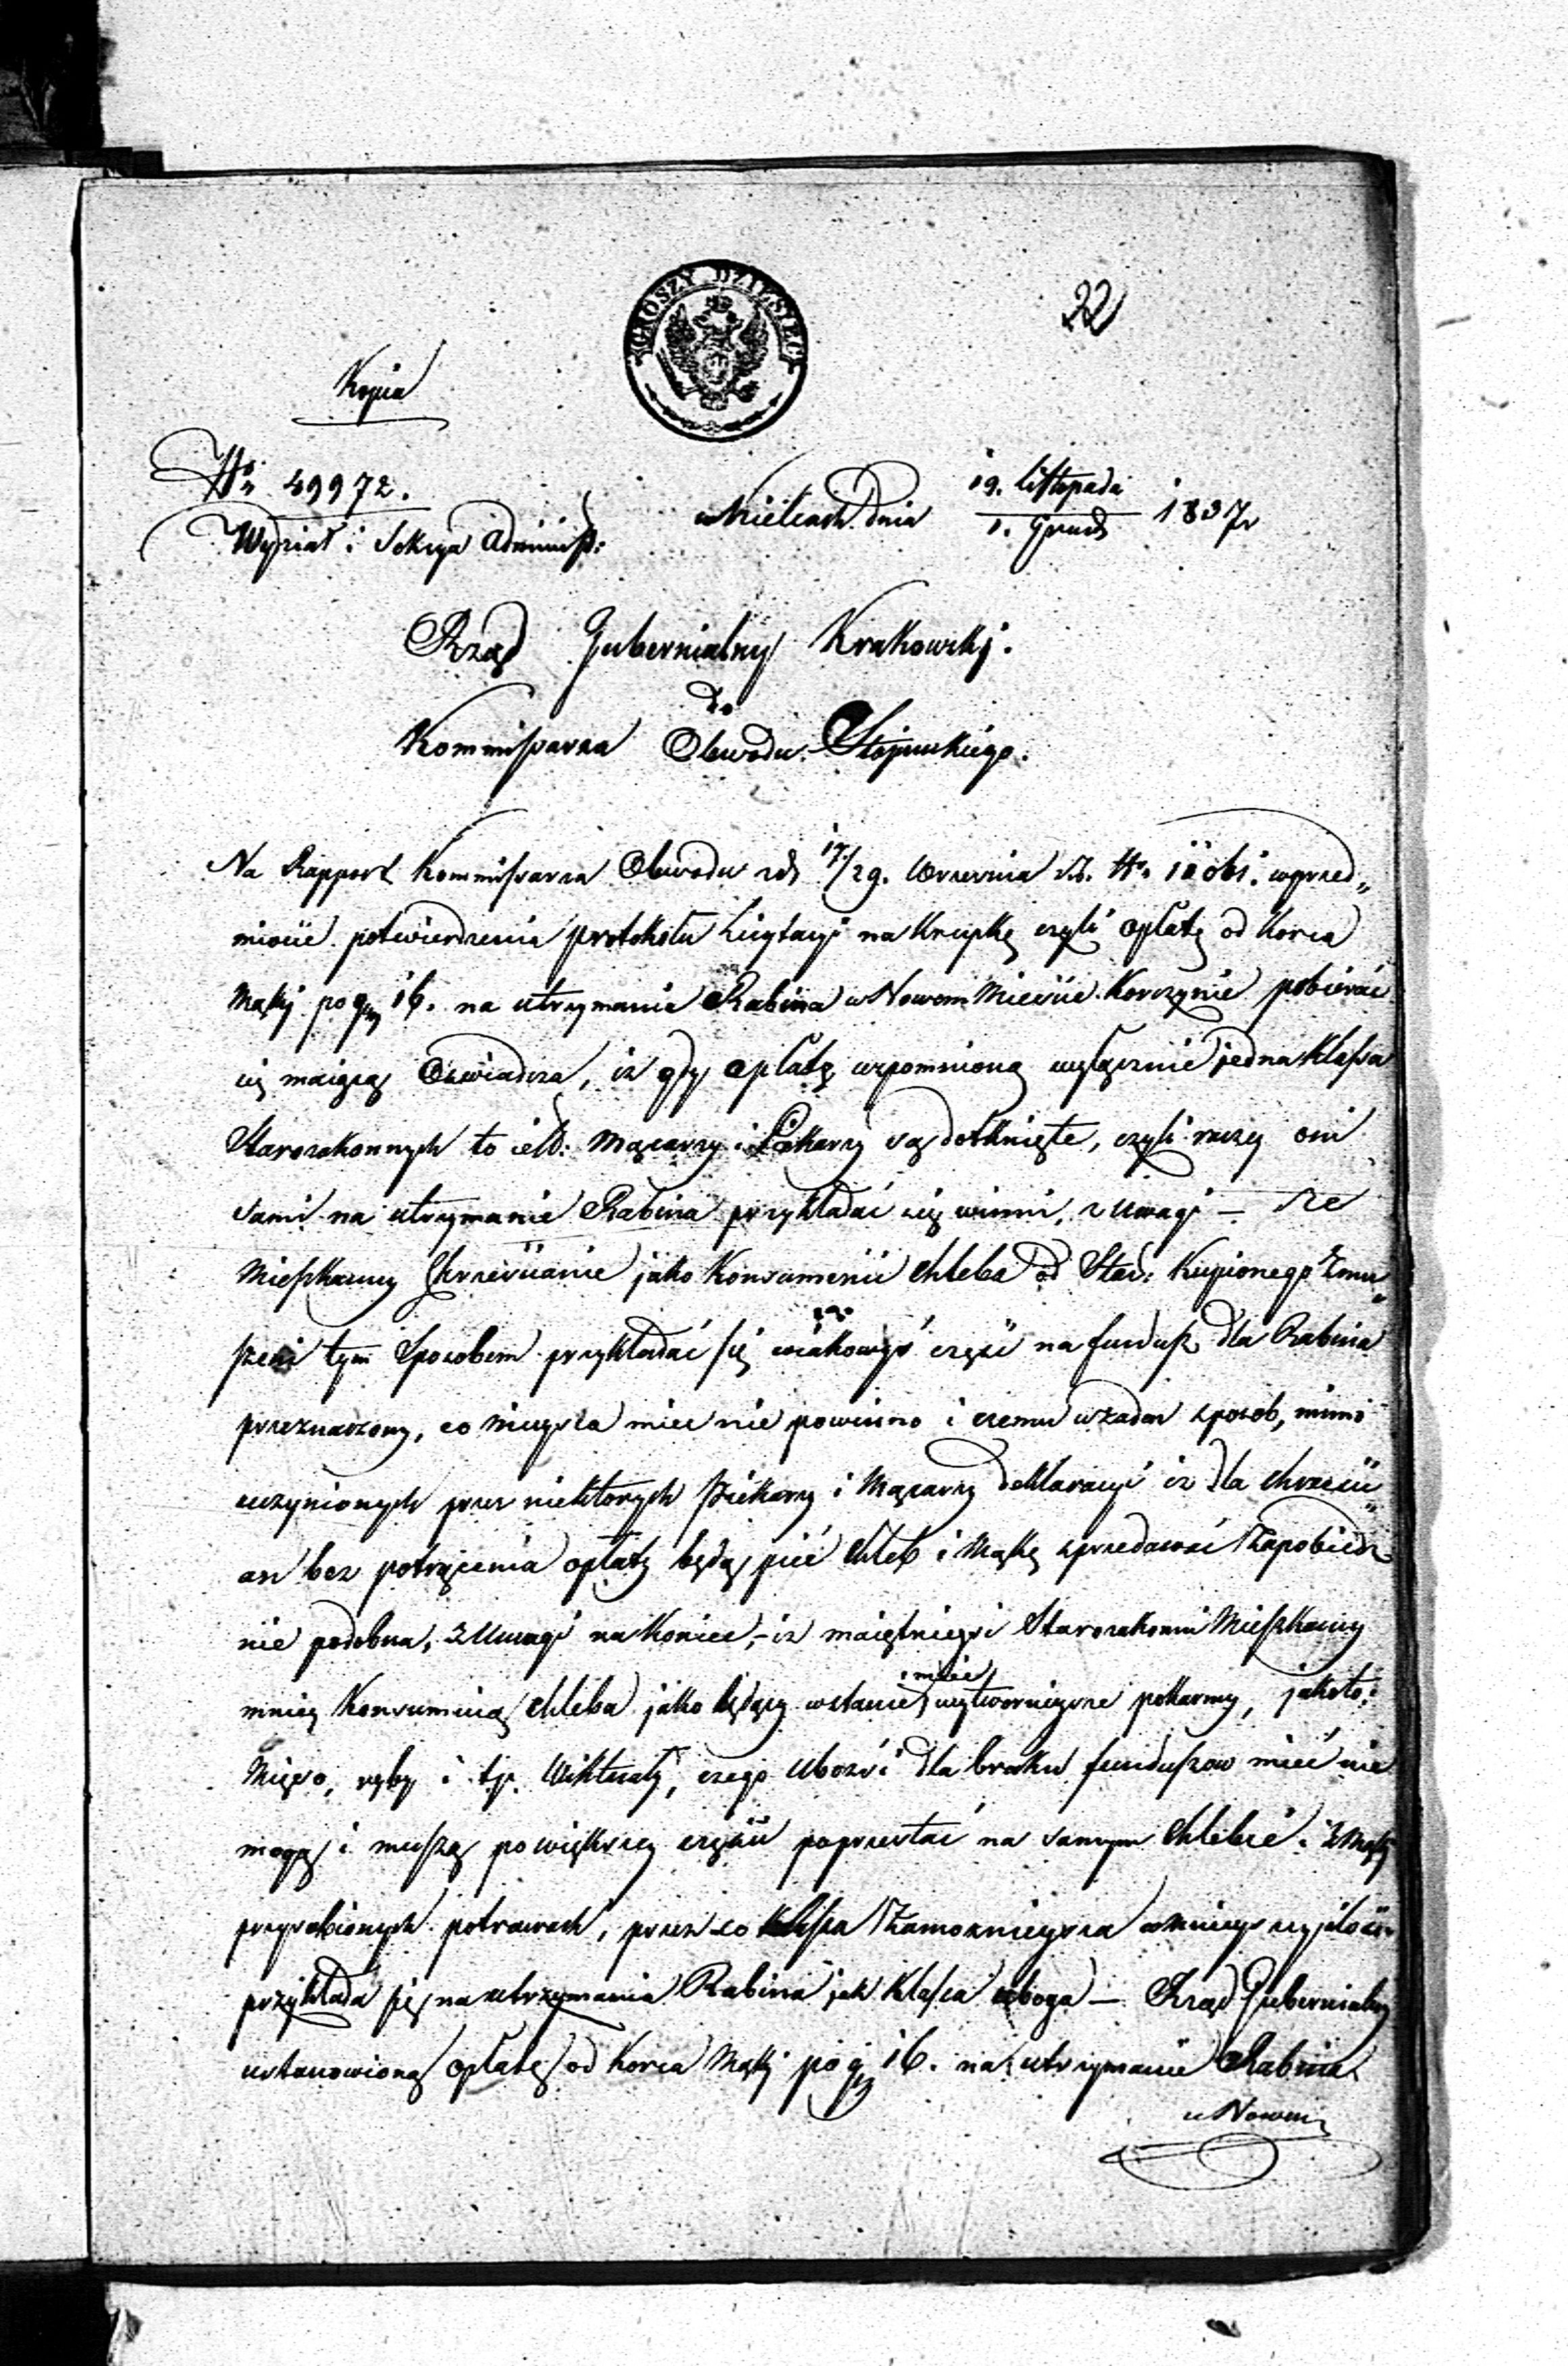 GROSZY DZIESIĘĆ
22
Kopia
Nr 49972.
Wydział i Sekcya Administ:
w Kielcach dnia 19. Listopada / 1. Grud 1837r
Rząd Gubernialny Krakowski.
do
Kommissarza Obwodu Stopnickiego.
Na Rapport Kommissarza Obwodu z d 17/29. Września r.b. Nr wprzed„
miocie potwierdzenia protokołu Licytacyi na Krupkę czyli opłatę od Korca
Mąki po gr 16. na utrzymania Rabina w Nowem Mieście Korczynie pobierać
się maiącą Oświadcza, iż gdy opłatą wspomnioną wyłącznie jedna Klassa
Starozakonnych to iest: Mącarzy i Piekarzy są dotknięte, czyli raczey oni
sami na utrzymanie Rabina przykładać się winni, z uwagi — że
Mieszkańcy Chrześcianie jako Konsumenci chleba od Star: Kupionego zmu„
szeni tym Sposobem przykładać się w iakowyś części na fundusz dla Rabina
przeznaczony, co mieysca mieć nie powinno i czemu w żaden sposób, mimo
uczynionych przez niektórych Piekarzy i Mącarzy deklaracyi iż dla chrześci„
an bez potrącenia opłaty będą piec chleb i Mąkę sprzedawać zapobiedz
nie podobna, z Uwagi na Koniec,- iż maiętnieysi Starozakonni Mieszkańcy
mniey Konsumuią chleba jako będący wstanie mieć wytwornieysze pokarmy, jakoto:
Mięso, ryby i t.p. Wiktuały, czego Ubożsi dla braku funduszow mieć nie
mogą i muszą po większey części poprzestać na samym Chlebie i z Mąki
przyrobionych potrawach, przez co Klassa zamożnieysza w mnieyszey ilości
przykłada się na utrzymania Rabina jak Klassa uboga — Rząd Gubernialny
ustanowioną opłatę od Korca Mąki po gr 16. na utrzymanie Rabina
w Nowem